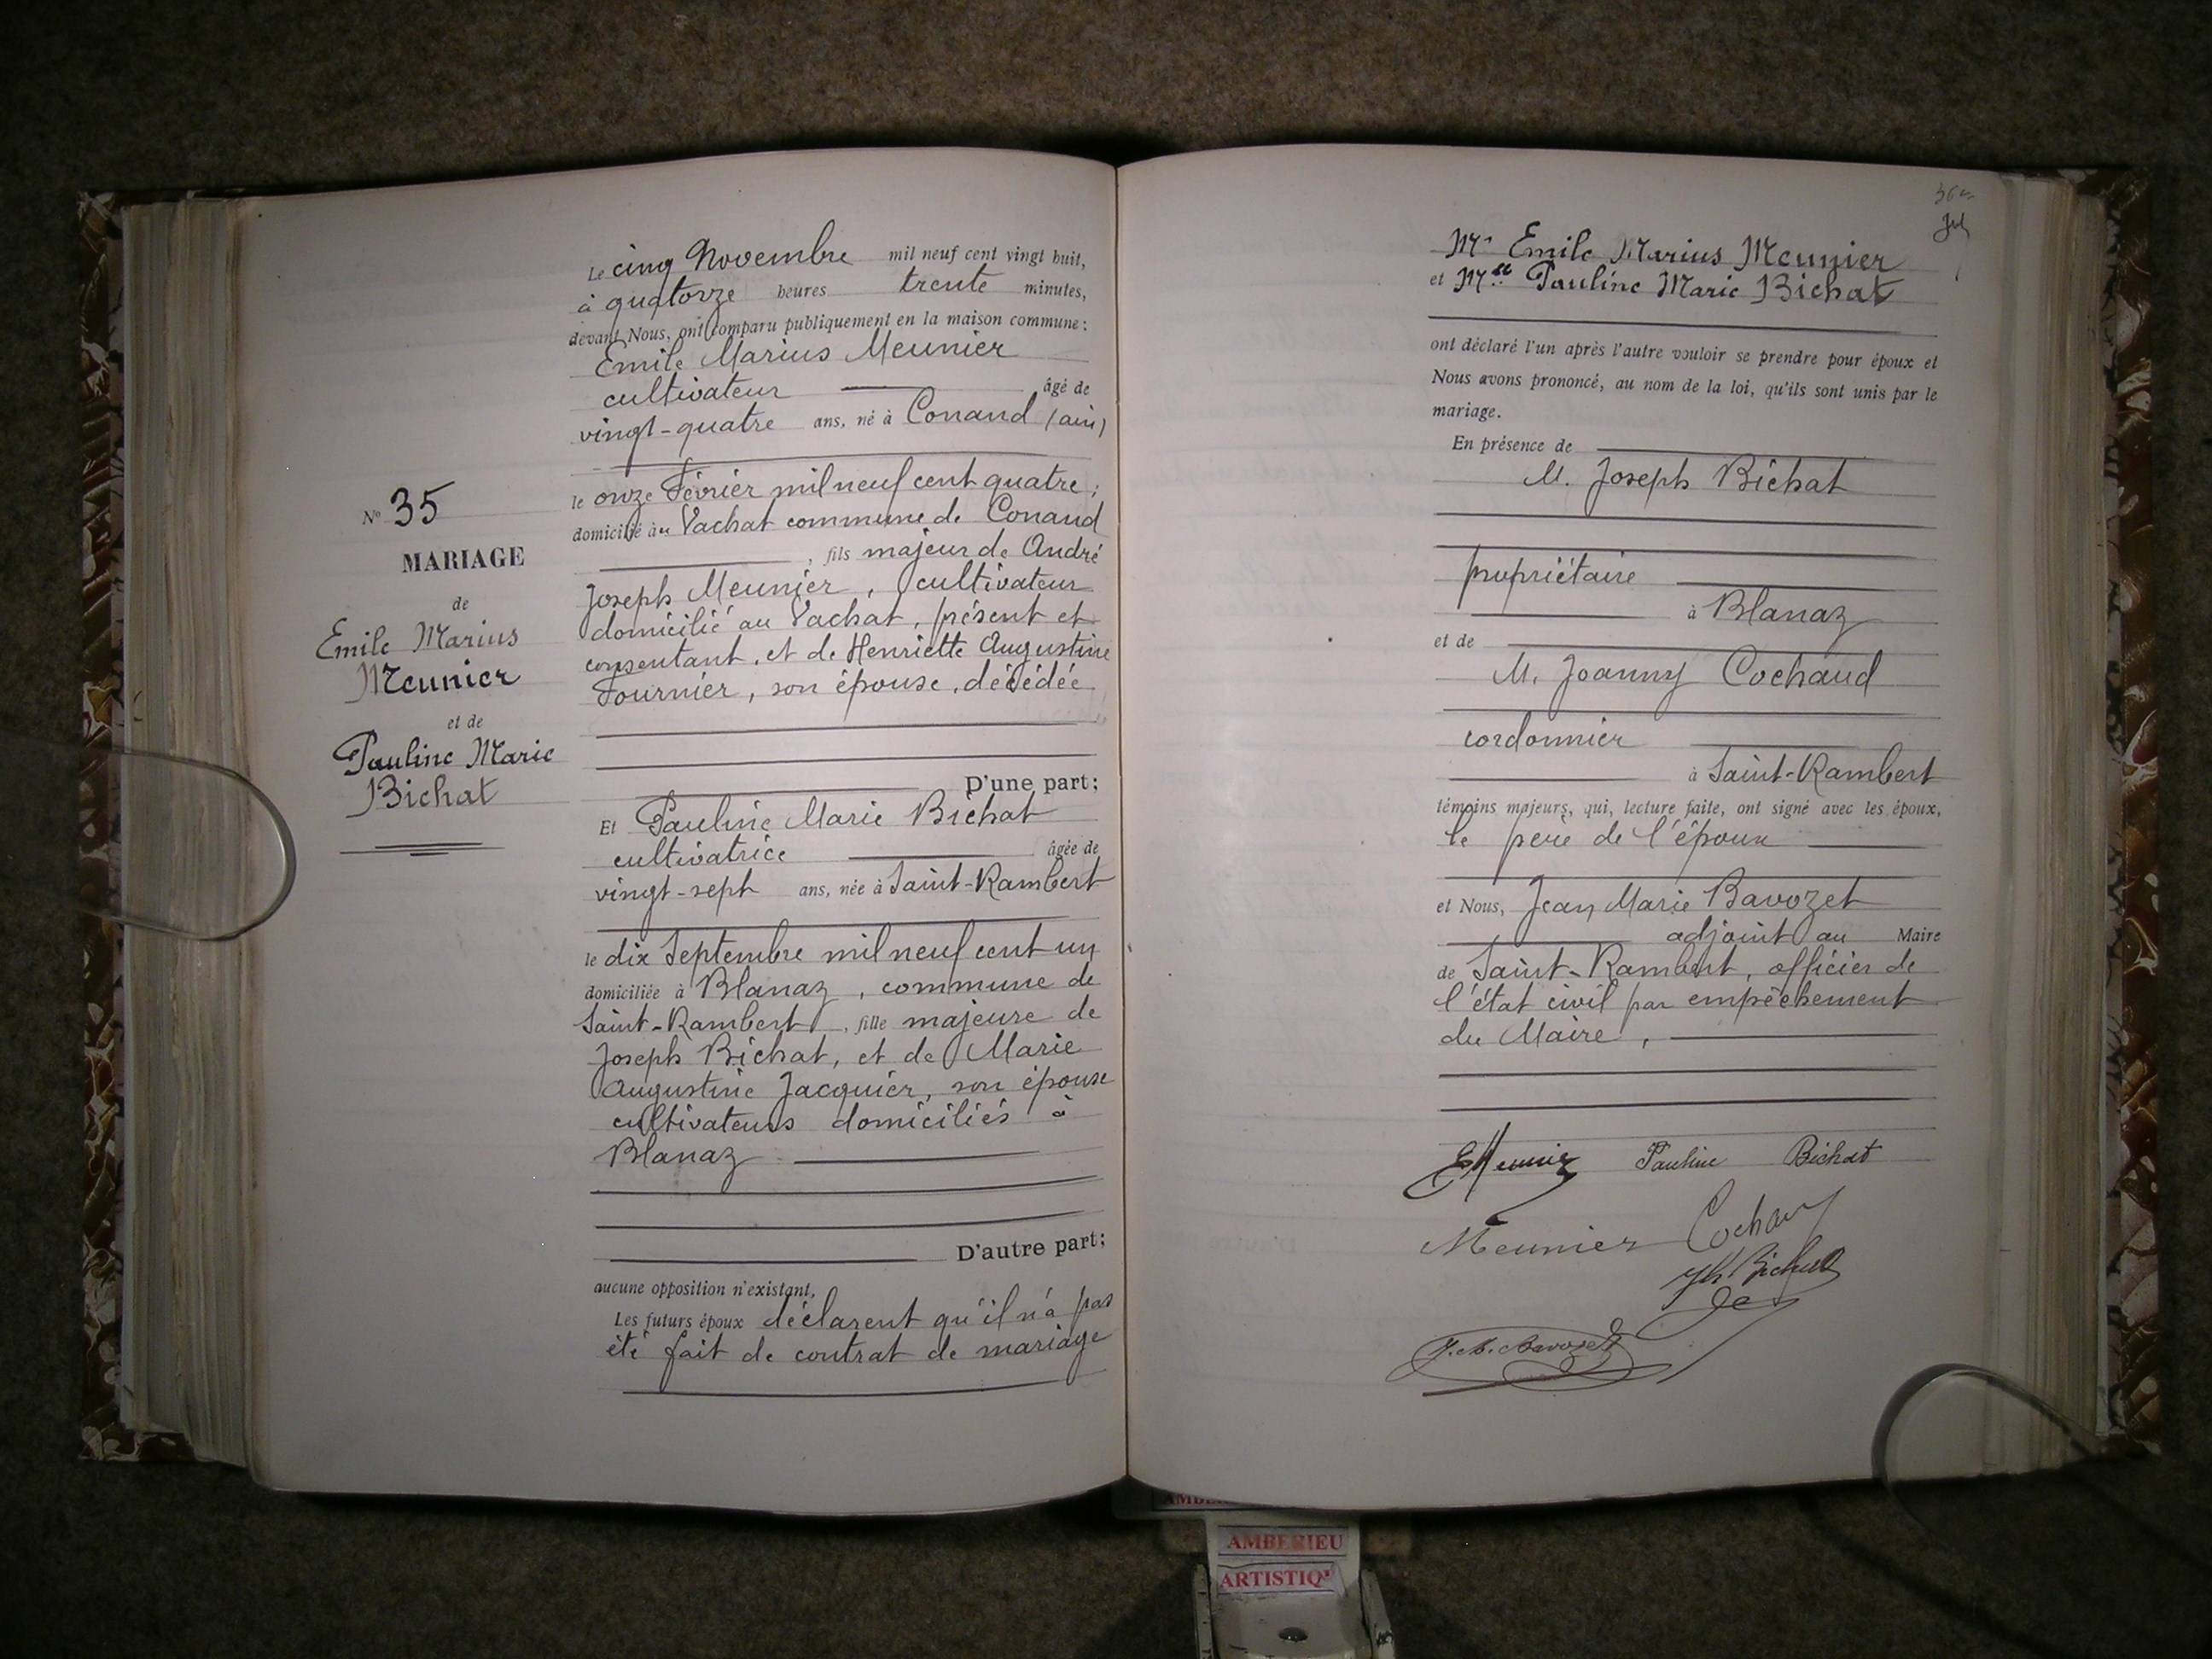 Le cinq Novembre mil neuf cent vingt huit,
à quatorze heures trente minutes,
devant Nous, ont comparu publiquement en la maison commune :
Emile Marius Meunier
cultivateur âgé de
vingt-quatre ans, né à Conand (ain)
le onze Février mil neuf cent quatre ;
domicilié au Vachat commune de Conand
, fils majeur de André
Joseph Meunier, cultivateur
domicilié au Vachat, présent et
consentant, et de Henriette Augustine
Fournier, son épouse, décédée
D'une part;
Et Pauline Marie Bichat
cultivatrice âgée de
vingt-sept ans, née à Saint-Rambert
le dix Septembre mil neuf cent un
domiciliée à Blanaz, commune de
Saint-Rambert, fille majeure de
Joseph Bichat, et de Marie
Augustine Jacquier, son épouse
cultivateurs domiciliés à
Blanaz
D'autre part;
aucune opposition n'existant,
Les futurs époux déclarent qu'il n'a pas
été fait de contrat de mariage
No 35
MARIAGE
de
Emile Marius
Meunier
et de
Pauline Marie
Bichat
Mr Emile Marius Meunier
et Mlle Pauline Marie Bichat
ont déclaré l'un après l'autre vouloir se prendre pour époux et
Nous avons prononcé, au nom de la loi, qu'ils sont unis par le
mariage.
En présence de
M. Joseph Bichat
propriétaire
à Blanaz
et de
M. Joanny Cochaud
cordonnier
à Saint-Rambert
témoins majeurs, qui, lecture faite, ont signé avec les époux,
le père de l'époux
et Nous, Jean Marie Bavozet
adjoint au Maire
de Saint-Rambert, officier de
l'état civil par empêchement
du Maire,
EMeunier Pauline Bichat
Meunier Cochaud
Jh Bichat
J. M. Bavozet
AMBERIEU
ARTISTIQ